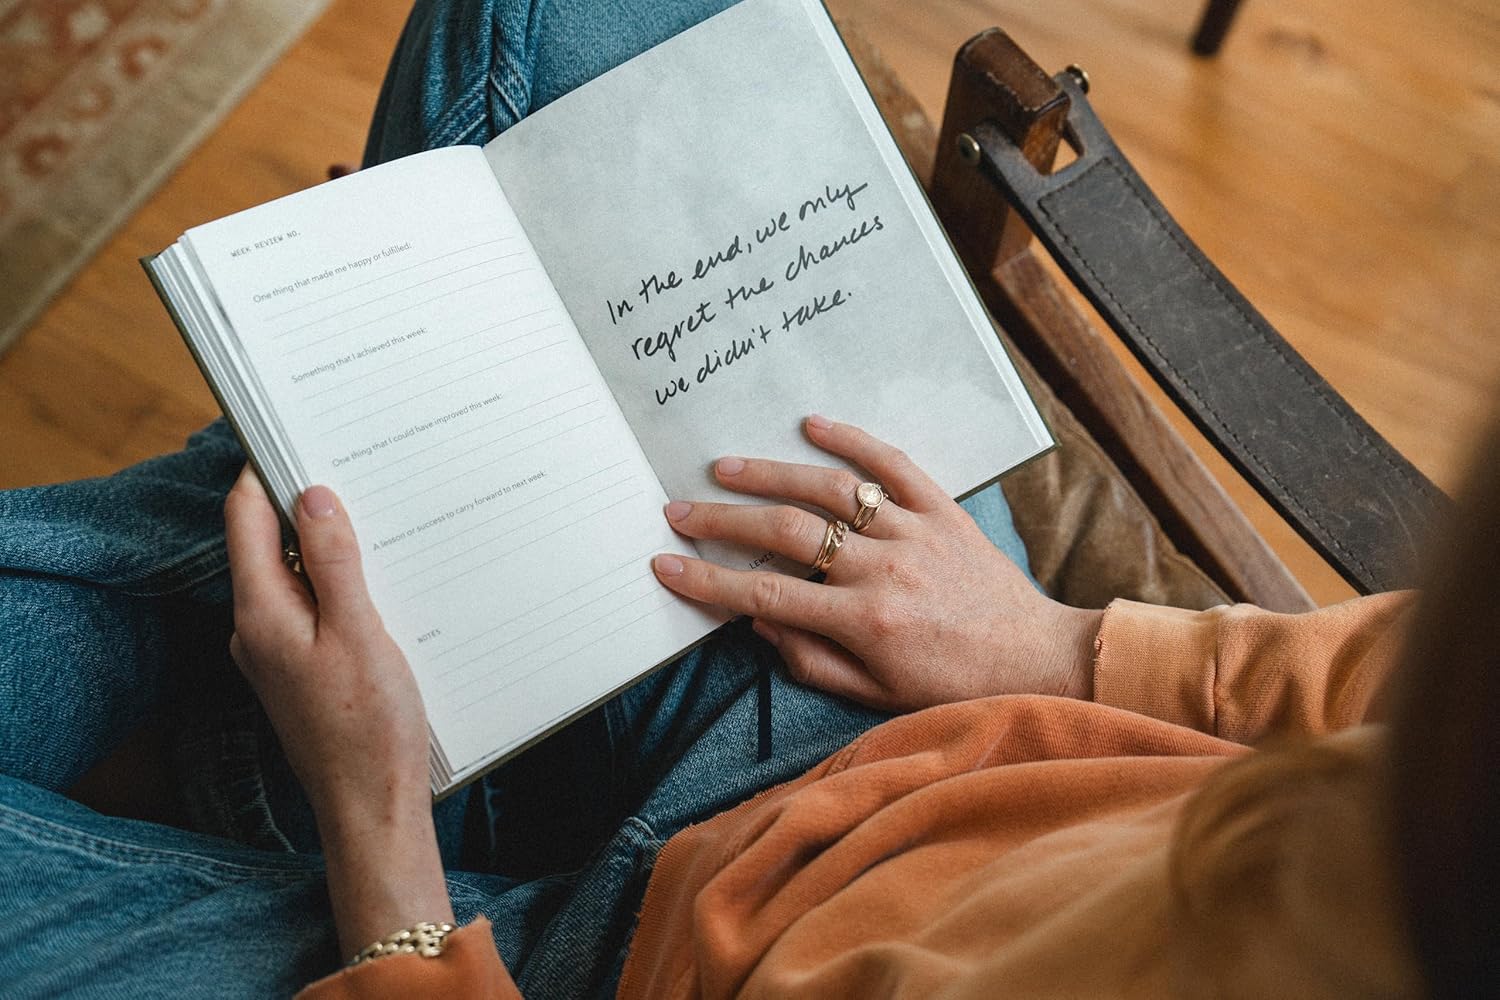 WEEK REVIEW NO.
One thing that made me happy or fulfilled:
Something that I achieved this week:
One thing that I could have improved this week:
A lesson or success to carry forward to next week:
NOTES
In the end, we only
regret the chances
we didn't take.
LEWIS